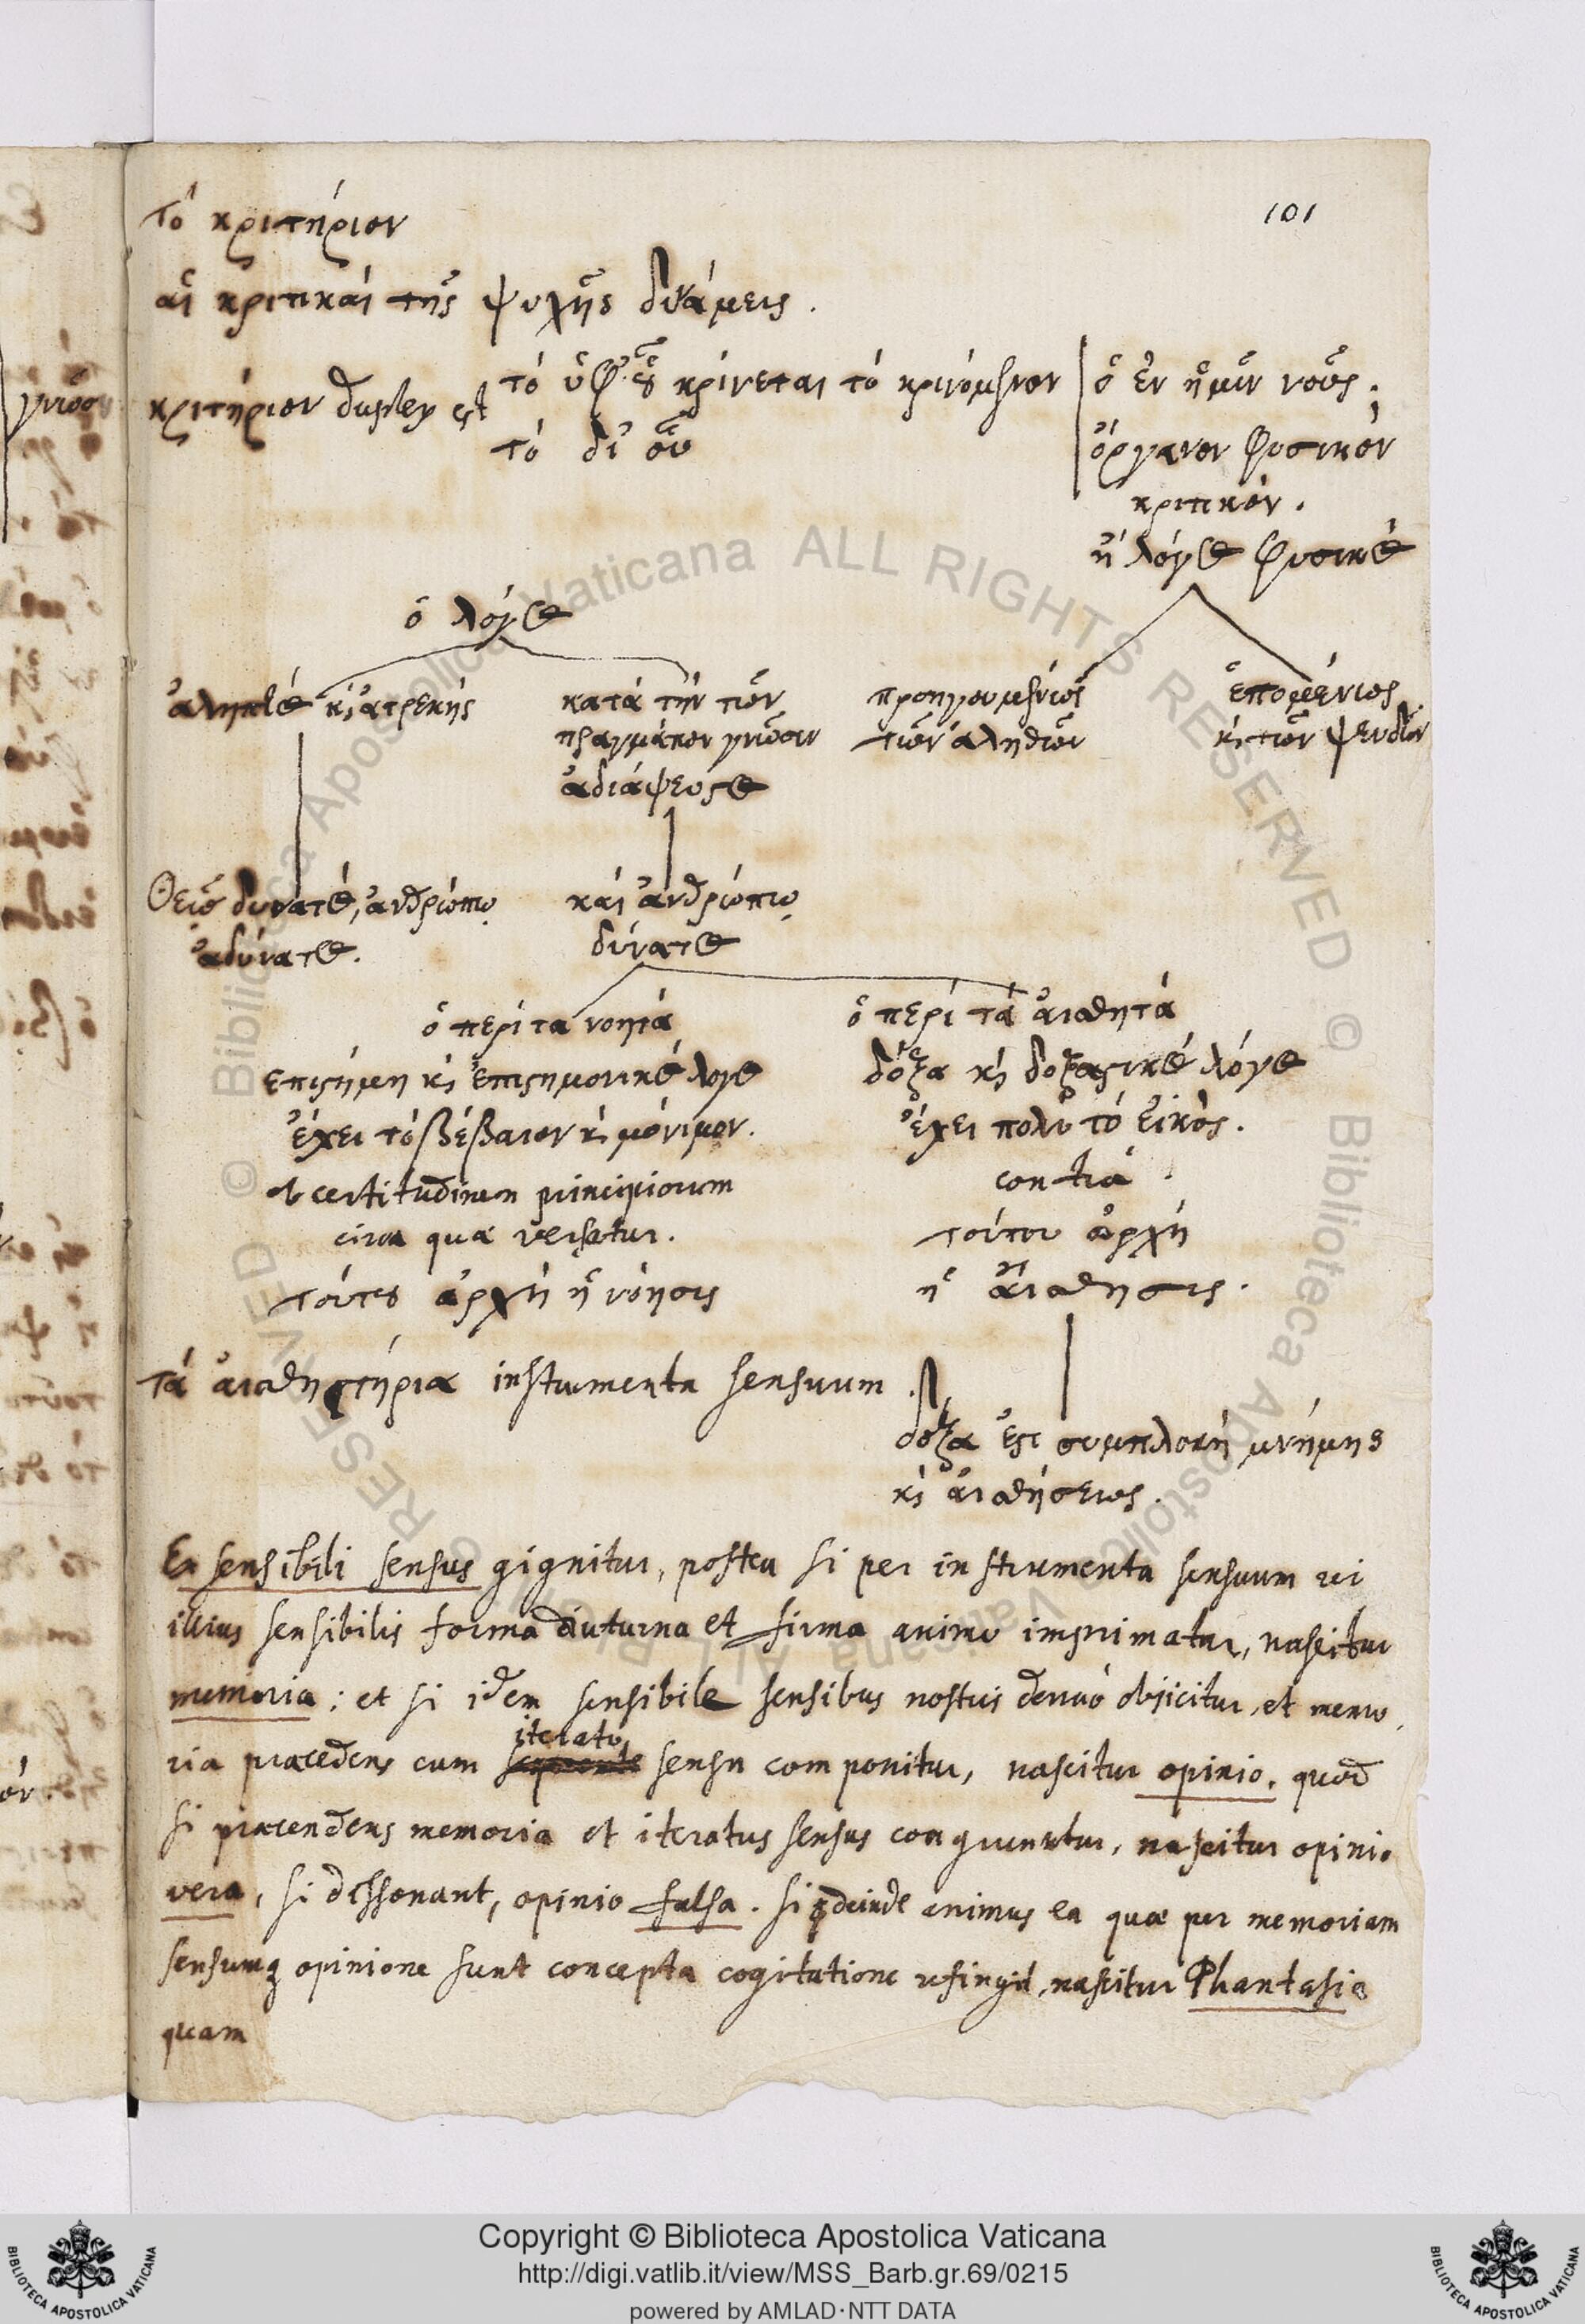 101
τὸ κριτήριον
αἱ κριτικαὶ τῆς ψυχῆς δυνάμεις.
κριτήριον duplex est τὸ ὑφ' οὗ κρίνεται τὸ κρινόμενον | ὁ ἐν ἡμῖν νοῦς.
τὸ δι' οὗ ὄργανον φυσικὸν
κριτικόν.
ἢ λόγος φυσικὸς
ὁ λόγος
ἄληπτος κ ἀτρεκὴς κατὰ τὴν τῶν προηγουμένως ἑπομένως
πραγμάτων γνῶσιν τῶν ἀληθῶν κ τῶν ψευδῶν
ἀδιάψευστος
Θεῷ δυνατὸς, ἀνθρώπῳ καὶ ἀνθρώπῳ
ἀδύνατος. δύνατος
ὁ περὶ τα νοητὰ ὁ περὶ τὰ αἰσθητὰ
επιστήμη κ ἐπιστημονικὸς λογος δόξα κ δοξαστικὸς λόγος
ἔχει τὸ βέβαιον κ μόνιμον. ἔχει πολὺ τὸ εἰκός.
ob certitudinem principiorum contra
circa quae versatur. τούτου ἀρχὴ
τούτου ἀρχὴ ἡ νόησις ἡ αἴσθησις.
τὰ αἰσθητήρια instrumenta sensuum.
δοξα ἐστι συμπλοκὴ μνήμης
κ αἰσθήσεως.
Ex sensibili sensus gignitur, postea si per instrumenta sensuum rei
illius sensibilis forma diuturna et firma animo imprimatur, nascitur
memoria; et si idem sensibile sensibus nostris denuò obsicitur, et memo
iterato
ria praecedens cum sensu componitur, nascitur opinio. quod
si praecendens memoria et iteratus sensus congruuntur, nascitur opinio
vera, si dissonant, opinio falsa. si deinde animus ea quae per memoriam
sensumq opinione sunt concepta cogitatione refingit, nascitur Phantasia
quam
Copyright © Biblioteca Apostolica Vaticana
http://digi.vatlib.it/view/MSS_Barb.gr.69/0215
powered by AMLAD·NTT DATA